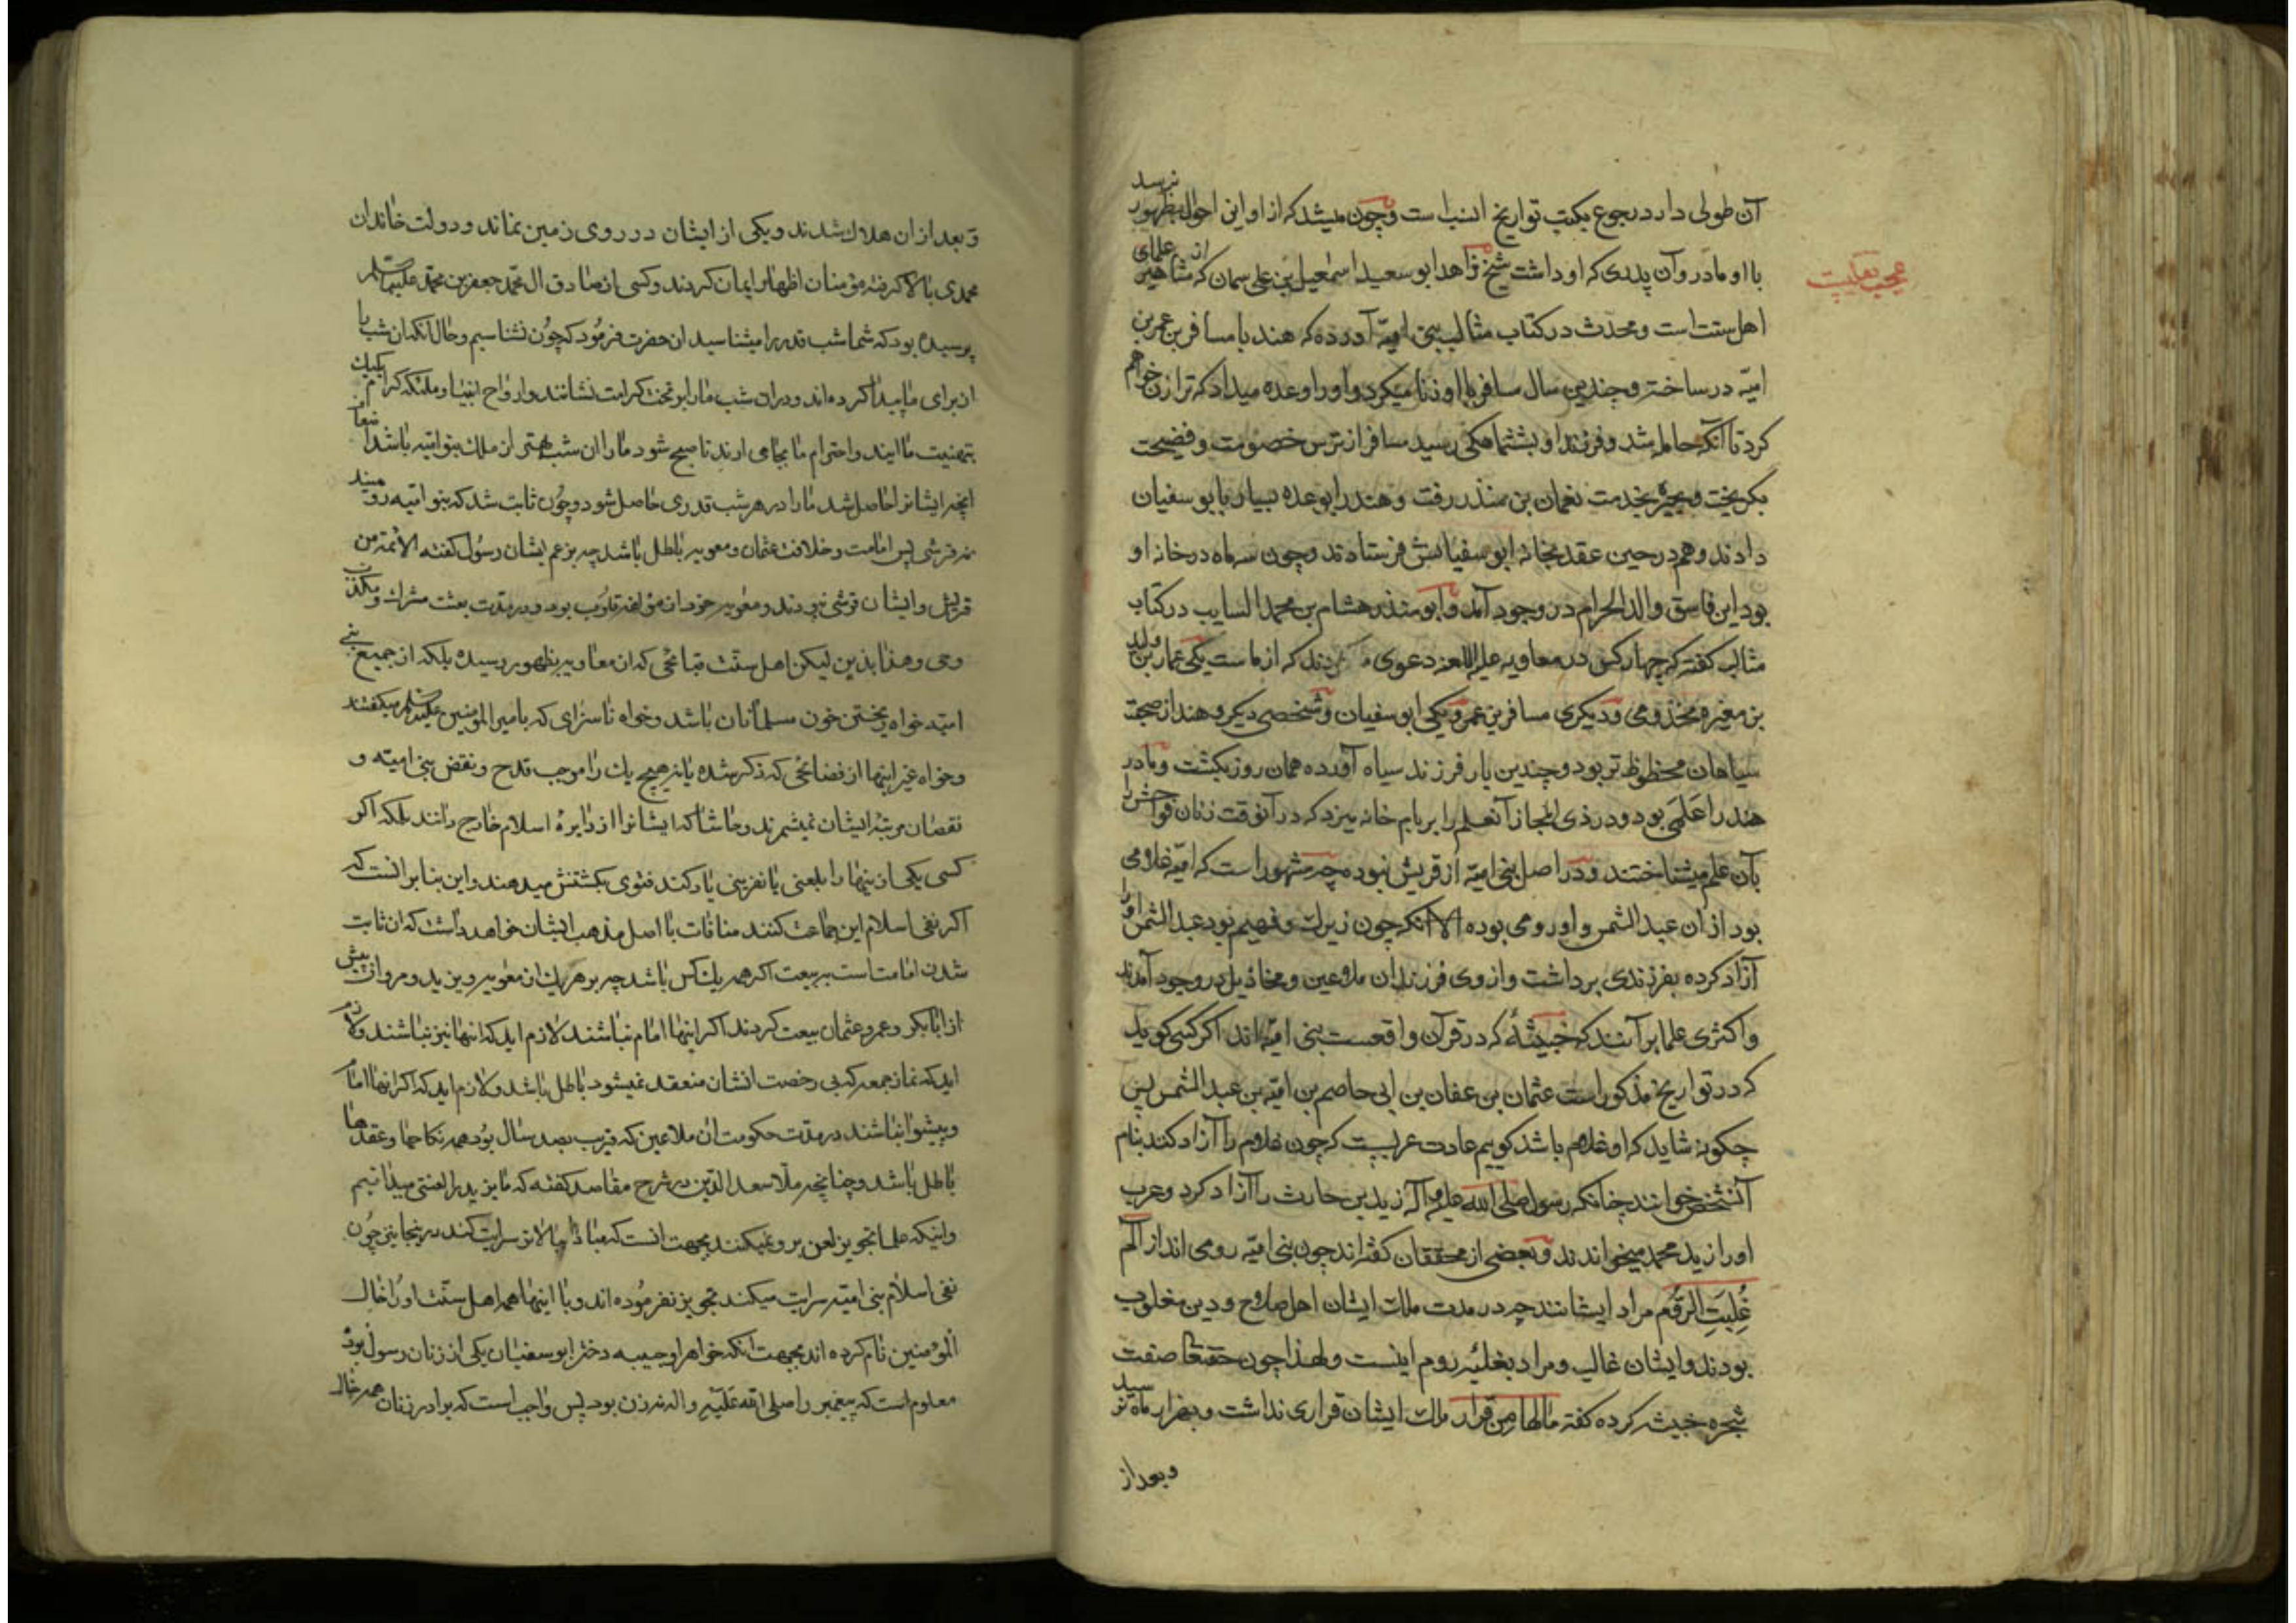 آن طولی دارد رجوع بکتب تواریخ انسب است و چون میشد که از او این احوال بظهور نرسد
عجب نقلیست
با او مادر و آن پدری که او داشت شیخ زاهد ابو سعید اسمعیل بن علی سمان که از مشاهیر علمای
اهل سنت است و محدث در کتاب مثالب بنی امیه آورده که هند با مسافر بن عمر بن
امیه در ساخته و چندین سال مسافر با او زنا میکرد و او را وعده میداد که ترا زن خواهم
کرد تا آنکه حامله شد و فرزند او بششماهکی رسید مسافر از ترس خصومت و فضیحت
بکریخت و بحیره بخدمت نعمان بن منذر رفت و هند را بوعده بسیار بابو سفیان
دادند و هم در حین عقد بخانه ابو سفیانش فرستادند و چون سه ماه در خانه او
بود این فاسق والد الحرام در وجود آمد و ابو منذر هشام بن محمد السایب در کتاب
مثالب کفته که چهار کس در معاویه علیه اللعنه دعوی کردند که از ماست یکی عمار بن ولید
بن مغیره مخذومی و دیکری مسافر بن عمر و یکی ابو سفیان و شخصی دیکر و هند از صحبت
سیاهان محظوظ تر بود و چندین بار فرزند سیاه آورده همان روز بکشت و مادر
هند را علمی بود و در ذی المجاز آنعلم را بر بام خانه میزد که در آنوقت زنان فواحش را
بآن علم میشناختند و در اصل بنی امیه از قریش نبوده چه مشهور است که امیه غلامی
بود از ان عبد الشمس و او رومی بوده الا آنکه چون زیرک و فهیم بود عبد الشمس او را
آزاد کرده بفرزندی برداشت و از وی فرزندان ملاعین و مخاذیل در وجود آمدند
و اکثری علما برآنند که خبیثهٔ که در قرآن واقعست بنی امیه اند اکر کسی کوید
که در تواریخ مذکور است عثمان بن عفان بن ابی حاصم بن امیه بن عبد الشمس پس
چکونه شاید که او غلام باشد کوییم عادت عربست که چون غلام را آزاد کنند بنام
آنشخص خوانند چنانکه رسول صلی الله علیه و آله زید بن حارث را آزاد کرد و عرب
او را زید محمد میخواندند و بعضی از محققان کفته اند چون بنی امیه رومی اند از الم
غُلِبَتِ الرّوُم مراد ایشانند چه در مدت ملک ایشان اهل صلاح و دین مغلوب
بودند و ایشان غالب و مراد بغلبه روم اینست و لهذا چون حقتعا صفت
شجره خبیثه کرده کفته مالها من قرار ملک ایشان قراری نداشت و بهزار ماه نرسید
و بعد از
و بعد از ان هلاک شدند و یکی از ایشان در روی زمین نماند و دولت خاندان
محمدی بالا کرفته مؤمنان اظهار ایمان کردند و کسی از صادق ال محمد جعفر بن محمد علیهما السلام
پرسیده بود که شما شب قدر را میشناسید ان حضرت فرمود که چون نشناسیم و حال انکه ان شب را
از برای ما پیدا کرده اند و دران شب ما را بر تخت کرامت نشانند و ارواح انبیا و ملئکه کرام یکیک
بتهنیت ما ایند و احترام ما بجا می ارند تا صبح شود ما را ان شب بهتر از ملک بنو امیه باشد
انچه ایشانرا حاصل شد ما را در هر شب قدری حاصل شود و چون ثابت شد که بنو امیه رومیند
نه قرشی پس امامت و خلافت عثمان و معویه باطل باشد چه بزعم ایشان رسول کفته الائمة من
قریش و ایشان قرشی نبودند و معویه خود از مؤلفه قلوب بود و در مدت بعثت مشرک و مکذب
وحی و هذا بذین لیکن اهل سنت قبایحی که از معاویه بظهور رسیده بلکه از جمیع بنی
امیه خواه ریختن خون مسلمانان باشد و خواه ناسزای که بامیر المؤمنین علیه السلم میکفتند
و خواه غیر اینها از فضایحی که ذکر شده یا نه هیچ یک را موجب قدح و نقض بنی امیه و
نقصان مرتبه ایشان نمیشمرند و حاشا که ایشانرا از دایرهٔ اسلام خارج دانند بلکه اکر
کسی یکی از ینها را بلعنی یا نفرینی یاد کند فتوی بکشتنش میدهند و این بنابر انست که
اکر نفی اسلام این جماعت کنند منافات با اصل مذهب ایشان خواهد داشت که ان ثابت
شدن امامت است به بیعت اکر همه یک کس باشد چه بر هر یک از معویه و یزید و مروان بیش
از ابابکر و عمر و عثمان بیعت کردند اکر اینها امام نباشند لازم اید که انها نیز نباشند و لازم
اید که نماز جمعه که بی رخصت انشان منعقد نمیشود باطل باشد و لازم اید که اکر انها امام
و پیشوا نباشند در مدت حکومت ان ملاعین که قریب بصد سال بود همه نکاحها و عقدها
باطل باشد و چنانچه ملا سعد الدین در شرح مقاصد کفته که ما یزید را لعنتی میدانیم
و اینکه علما تجویز لعن بر و نمیکنند بجهت انست که مبادا ببالاتر سرایت کند در ینجا نیز چون
نفی اسلام بنی امیه سرایت میکند تجویز نفرموده اند و با اینها همه اهل سنت او را خال
المؤمنین نام کرده اند بجهت انکه خواهر او حبیبه دختر ابو سفیان یکی از زنان رسول بود
معلوم است که پیغمبر را صلی الله علیه و اله نه زن بود پس واجب است که برادر زنان همه خال